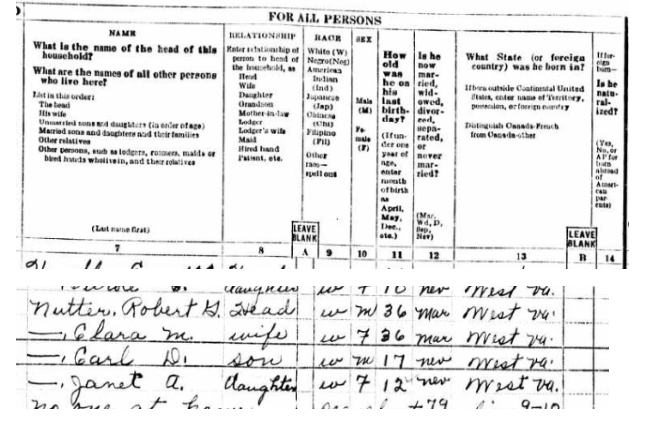 FOR ALL PERSONS
NAME
What is the name of the head of this
household?
What are the names of all other persons
who live here?
List in this order:
The head
His wife
Unmarried sons and daughters (in order of age)
Married sons and daughters and their families
Other relatives
Other persons, such as lodgers, roomers, maids or
hired hands who live in, and their relatives
(Last name first)
7
RELATIONSHIP
Enter relationship of
person to head of
the household, as
Head
Wife
Daughter
Grandson
Mother-in-law
Lodger
Lodger's wife
Maid
Hired hand
Patient, etc.
8
LEAVE
BLANK
A
RACE
White (W)
Negro (Neg)
American
Indian
(Ind)
Japanese
(Jap)
Chinese
(Chi)
Filipino
(Fil)
Other
race—
spell out
9
SEX
Male
(M)
Fe-
male
(F)
10
How
old
was
he on
his
last
birth-
day?
(If un-
der one
year of
age,
enter
month
of birth
as
April,
May,
Dec.,
etc.)
11
Is he
now
mar-
ried,
wid-
owed,
divor-
ced,
sepa-
rated,
or
never
mar-
ried?
(Mar,
Wd, D,
Sep,
Nev)
12
What State (or foreign
country) was he born in?
If born outside Continental United
States, enter name of Territory,
possession, or foreign country
Distinguish Canada-French
from Canada-other
13
LEAVE
BLANK
B
If for-
eign
born—
Is he
natu-
ral-
ized?
(Yes,
No, or
AP for
born
abroad
of
Ameri-
can
par-
ents)
14
daughter w f 10 nev West Va.
Nutter, Robert G. Head w m 36 mar West Va.
—, Clara M. wife w f 36 mar West Va.
—, Carl D. son w m 17 nev West Va.
—, Janet A. daughter w f 12 nev West Va.
no one at